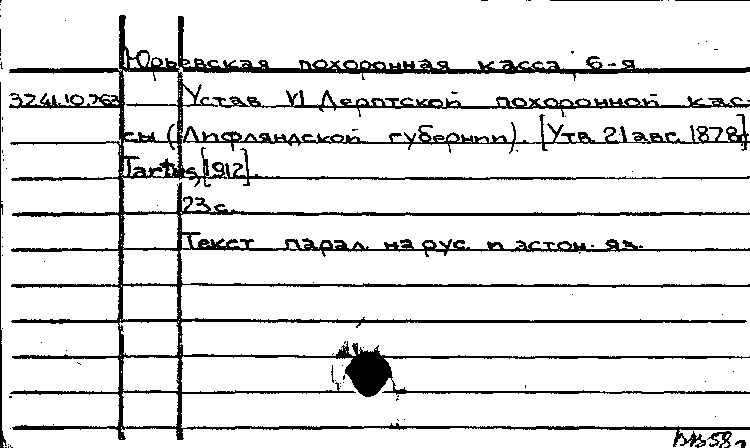 Юрьевская похоронная касса, 6-я
37.41.10.763 Устав VI Дерптской похоронной кас-
сы (Лифляндской губернии). [Утв. 21 авг. 1878]
Tartus, [1912].
23 с.
Текст парал. на рус. и эстон. яз.